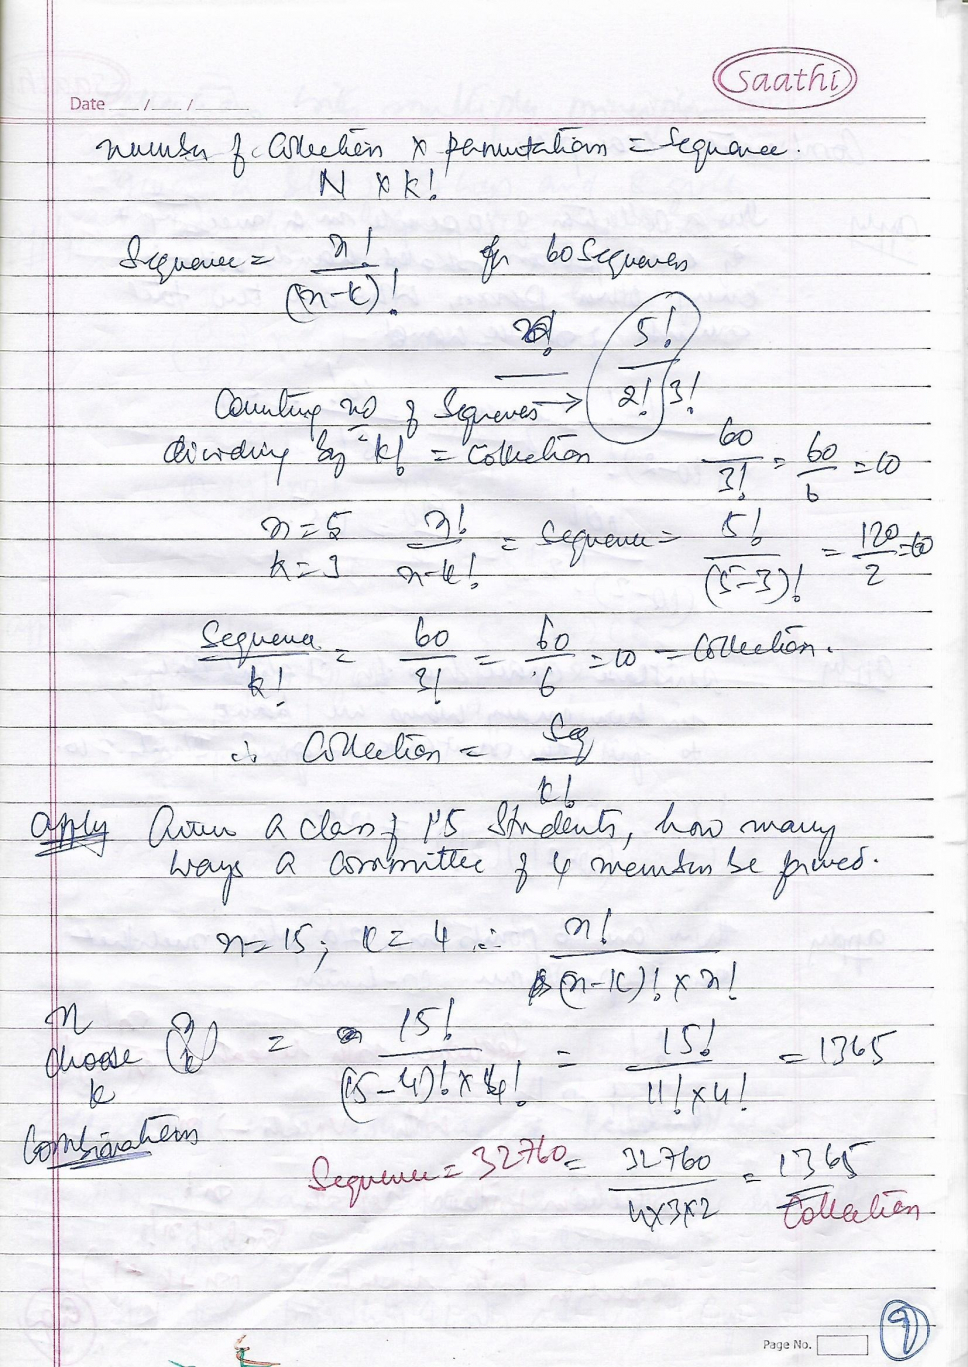 Saathi
Date __/__/__
number of collection × permutations = sequence.
N × k!
Sequence = n! / (n-k)! for 60 sequences
5! / 2! 3!
Counting no of sequences →
dividing by k! = Collection 60/3! = 60/6 = 10
n = 5 n! / n-k! = Sequence = 5! / (5-3)! = 120/2 = 60
k = 3
Sequence / k! = 60/3! = 60/6 = 10 = Collection.
∴ Collection = Seq / k!
apply Given a class of 15 Students, how many
ways a committee of 4 members be formed.
n = 15; k = 4 ∴ n! / (n-k)! × n!
n choose k (n k) = 15! / (15-4)! × 4! = 15! / 11! × 4! = 1365
Combinations
Sequence = 32760 = 32760 / 4×3×2 = 1365
Collection
9
Page No.